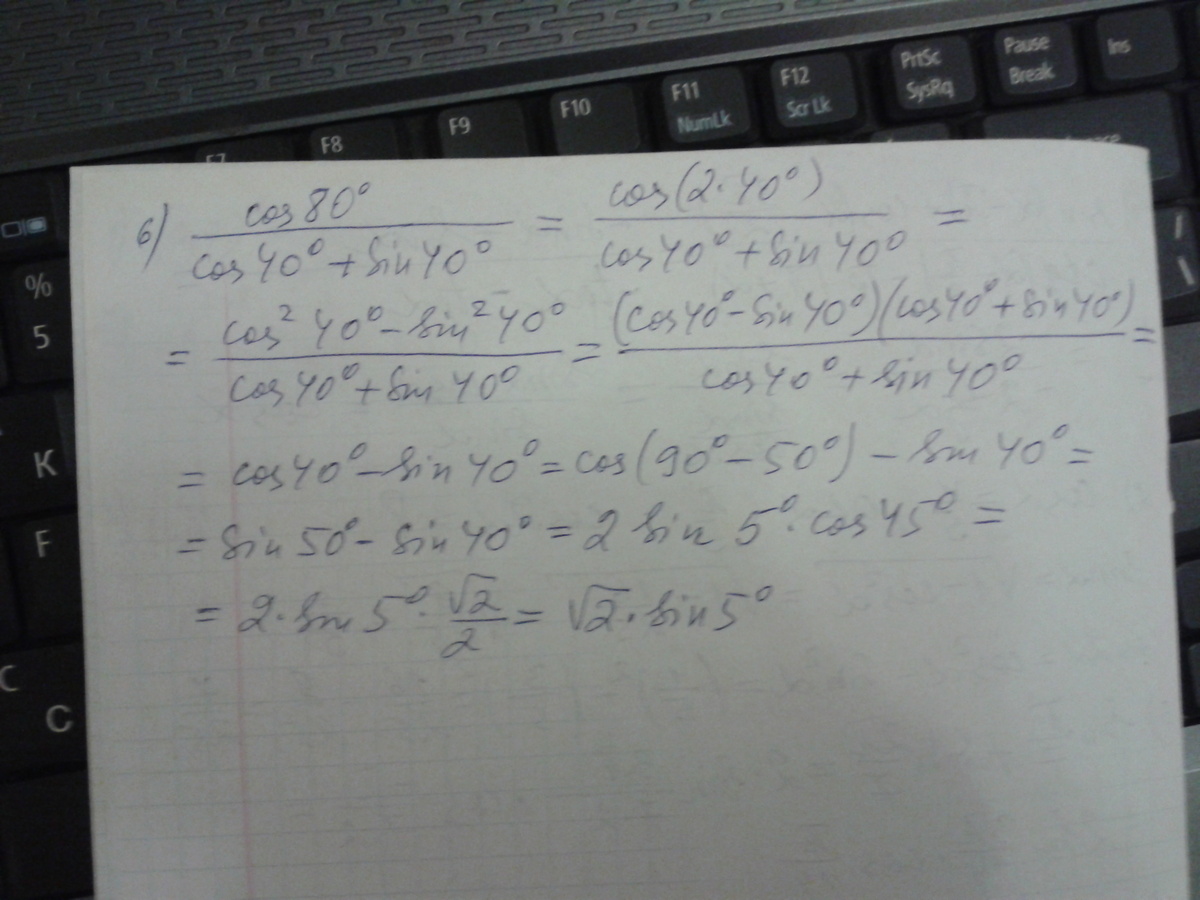 F7 F8 F9 F10 F11 NumLk F12 Scr Lk PrtSc SysRq Pause Break Ins
б) cos 80° / (cos 40° + sin 40°) = cos(2·40°) / (cos 40° + sin 40°) =
= (cos² 40° − sin² 40°) / (cos 40° + sin 40°) = (cos 40° − sin 40°)(cos 40° + sin 40°) / (cos 40° + sin 40°) =
= cos 40° − sin 40° = cos(90° − 50°) − sin 40° =
= sin 50° − sin 40° = 2 sin 5° · cos 45° =
= 2 · sin 5° · √2/2 = √2 · sin 5°
%
5
K
F
C
C
\